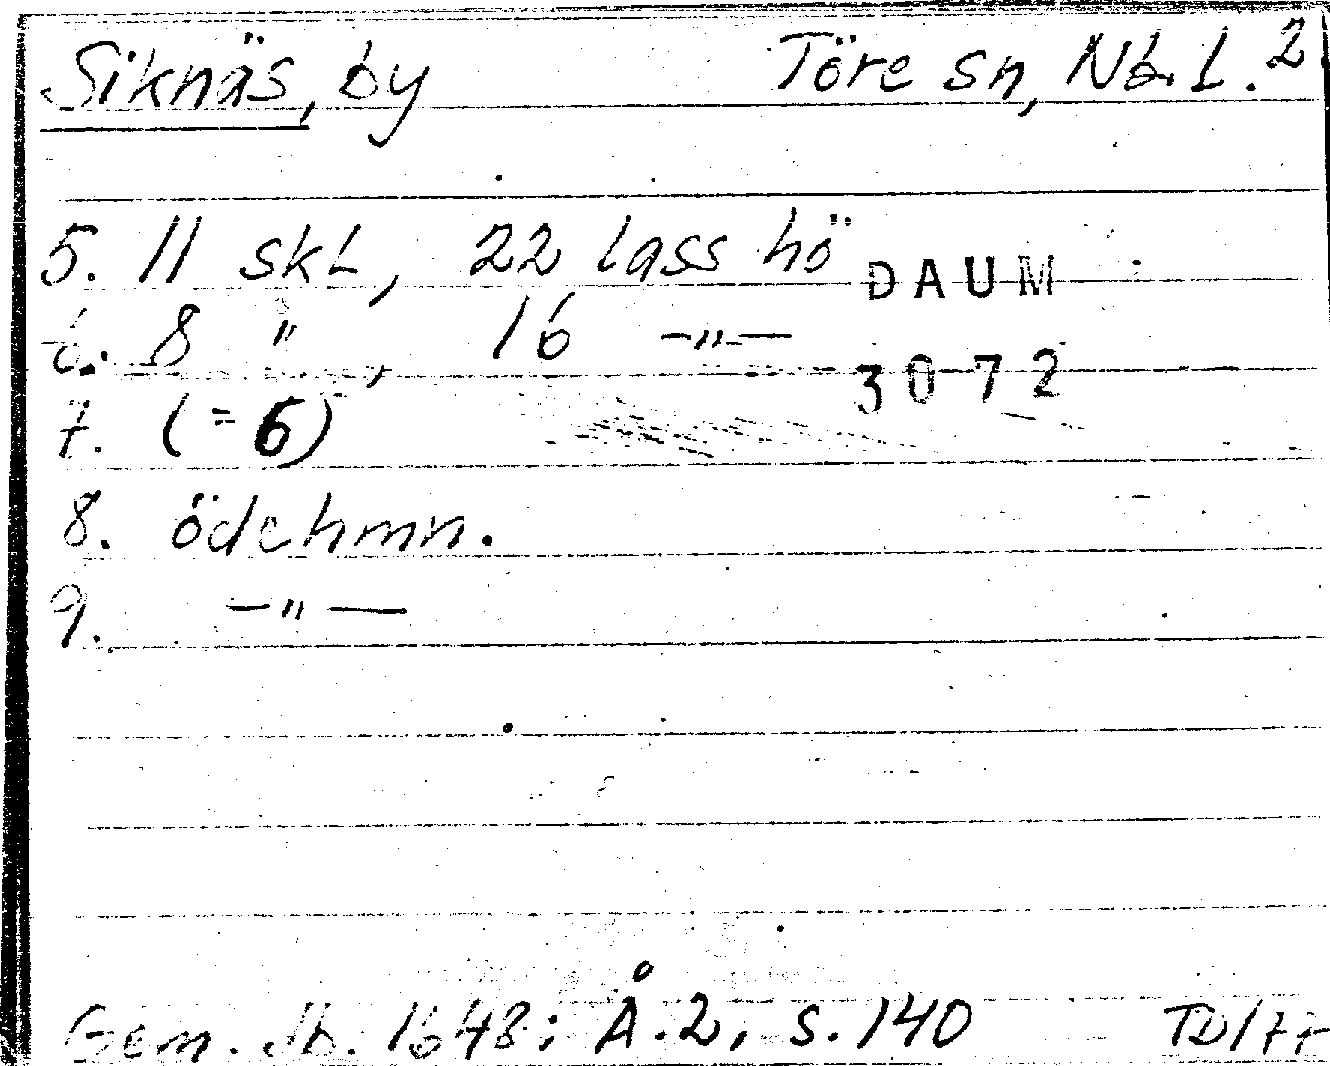 Siknäs, by Töre sn, Nb. L. 2.
5. 11 skl, 22 lass hö DAUM
6. 8 " , 16 -"-
3072
7. (= 6)
8. ödehmn.
9. -"-
Gem. Jb. 1648: Å. 2, s. 140 TD/77